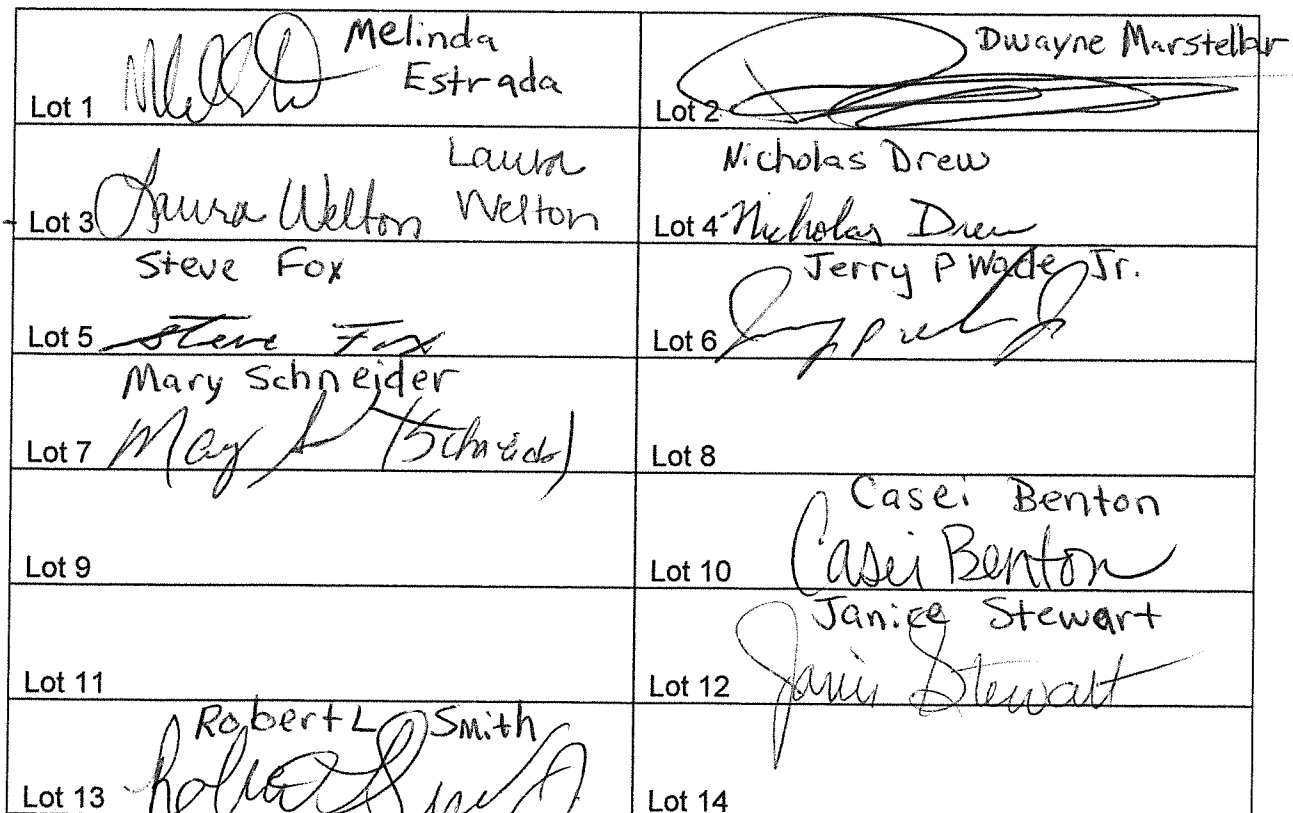 Melinda
Estrada
Lot 1
Dwayne Marstellar
Lot 2
Laura
Lot 3 Laura Welton Welton
Nicholas Drew
Lot 4 Nicholas Drew
Steve Fox
Lot 5 Steve Fox
Jerry P Wade Jr.
Lot 6
Mary Schneider
Lot 7 Mary (Schneider)
Lot 8
Lot 9
Casei Benton
Lot 10 Casei Benton
Lot 11
Janice Stewart
Lot 12 Janice Stewart
Robert L Smith
Lot 13
Lot 14